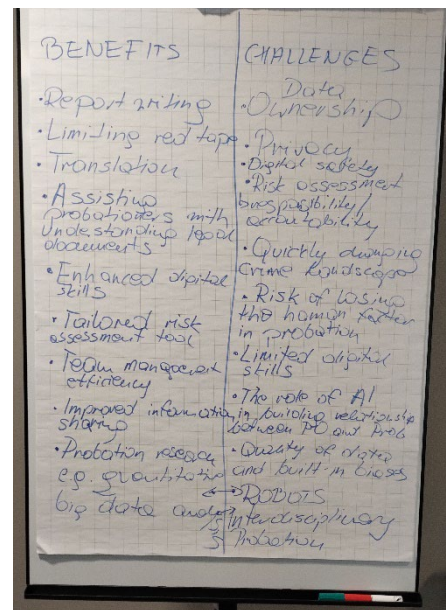 BENEFITS
• Report writing
• Limiting red tape
• Translation
• Assisting
probationers with
understanding legal
documents
• Enhanced digital
skills
• Tailored risk
assessment tool
• Team management
efficiency
• Improved information
sharing
• Probation research
e.g. quantitative
big data
CHALLENGES
Data
• Ownership
• Privacy
• Digital safety
• Risk assessment
accountability
• Quickly changing
crime landscape
• Risk of losing
the human factor
in probation
• Limited digital
skills
• The role of AI
in building relationship
between PO and Prob
• Quality of data
and built-in biases
ROBOTS
Interdisciplinary
Probation